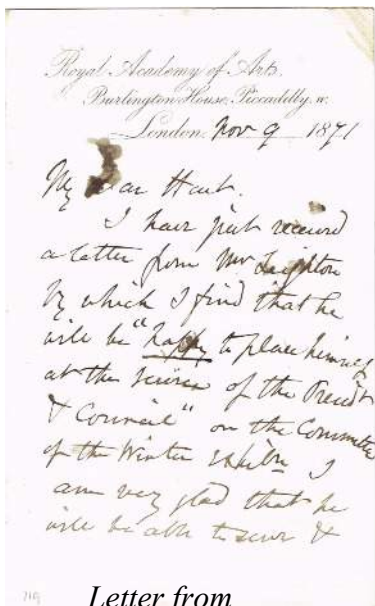 Royal Academy of Arts.
Burlington House, Piccadilly. w.
London. Nov 9 1871
My Dear Hart.
I have just received
a letter from Mr Leighton
by which I find that he
will be "happy to place himself
at the service of the Presidt
& Council" on the Committee
of the Winter Exhibn I
am very glad that he
will be able to serve &
Letter from